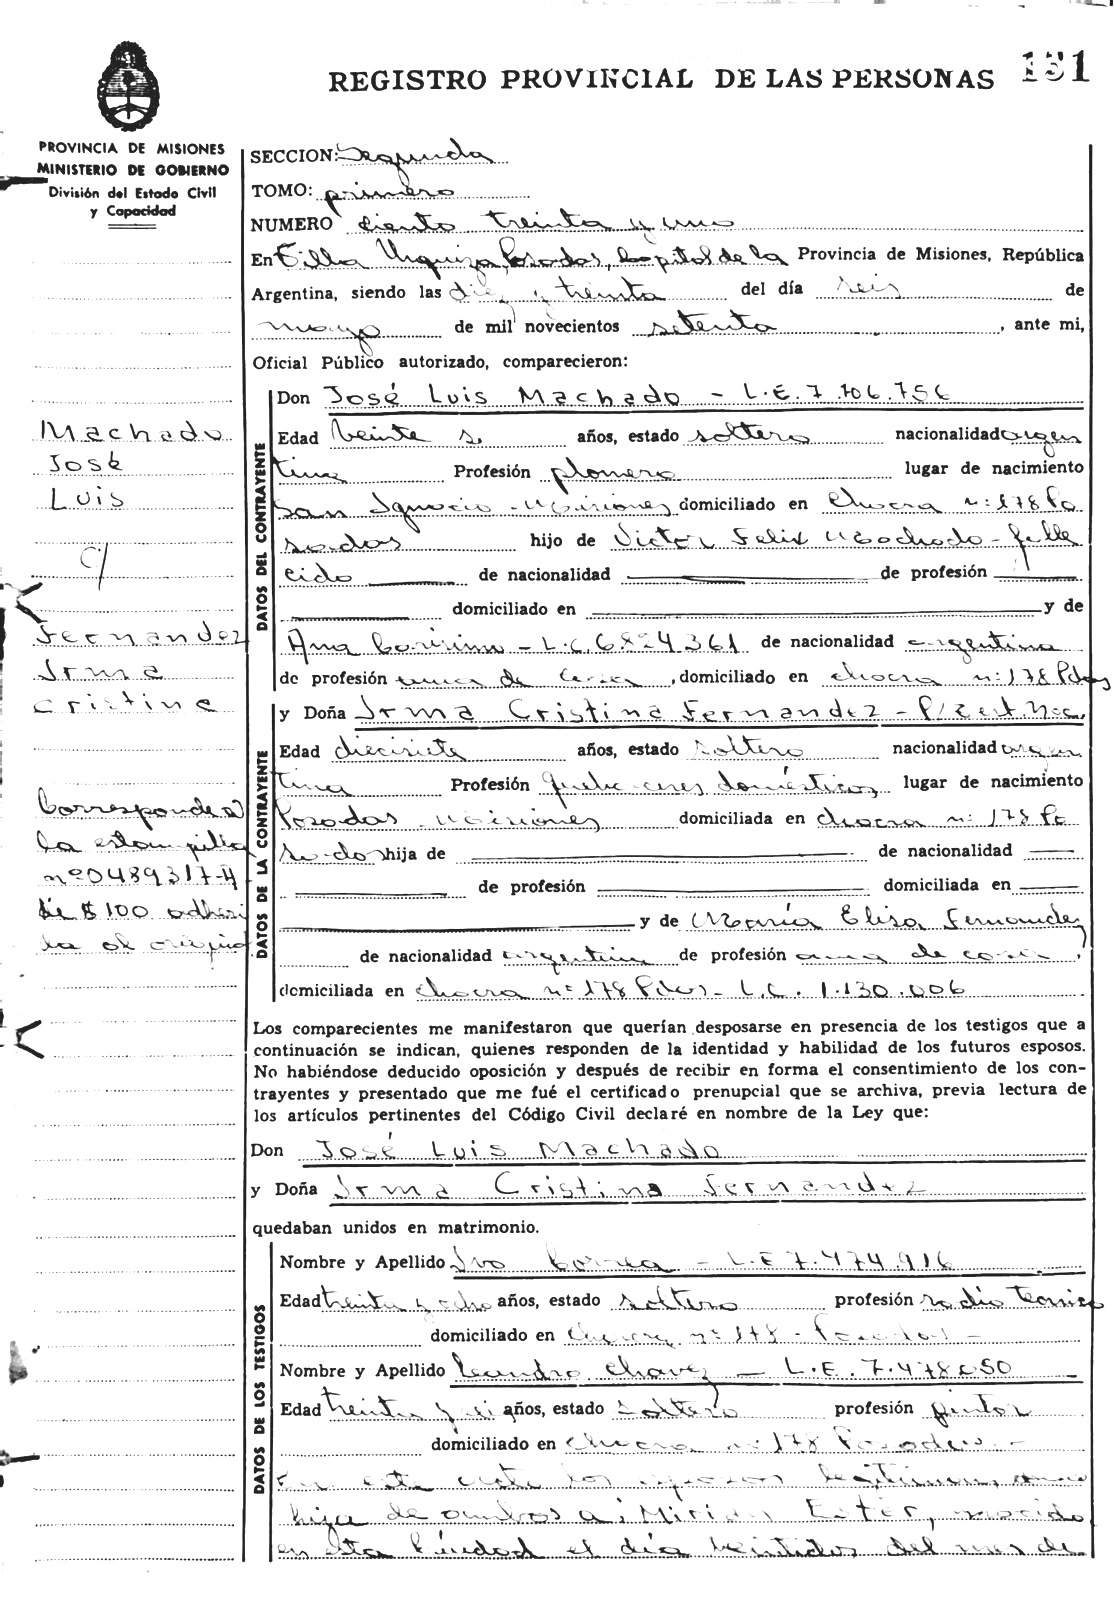 REGISTRO PROVINCIAL DE LAS PERSONAS 131
PROVINCIA DE MISIONES
MINISTERIO DE GOBIERNO
División del Estado Civil
y Capacidad
SECCION: Segunda
TOMO: primero
NUMERO ciento treinta y uno
En Villa Urquiza, Posadas, capital de la Provincia de Misiones, República
Argentina, siendo las diez y treinta del día seis de
mayo de mil novecientos setenta, ante mi,
Oficial Público autorizado, comparecieron:
DATOS DEL CONTRAYENTE
Don José Luis Machado - L.E. 7.106.756
Edad veinte años, estado soltero nacionalidad argen
tina Profesión plomero lugar de nacimiento
San Ignacio - Misiones domiciliado en chacra n: 178 Po
sadas hijo de Victor Felix Machado - falle
cido de nacionalidad de profesión
domiciliado en y de
Ana - L.C. de nacionalidad argentina
de profesión ama de casa, domiciliado en chacra n: 178 Pdas
DATOS DE LA CONTRAYENTE
y Doña Irma Cristina Fernandez - P/Cert. Nac.
Edad diecisiete años, estado soltera nacionalidad argen
tina Profesión quehaceres domésticos lugar de nacimiento
Posadas Misiones domiciliada en chacra n: 178 Po
sadas hija de de nacionalidad
de profesión domiciliada en
y de María Elisa Fernandez
de nacionalidad argentina de profesión ama de casa,
domiciliada en chacra n: 178 Pdas - L.C. 1.130.006
Los comparecientes me manifestaron que querían desposarse en presencia de los testigos que a
continuación se indican, quienes responden de la identidad y habilidad de los futuros esposos.
No habiéndose deducido oposición y después de recibir en forma el consentimiento de los con-
trayentes y presentado que me fué el certificado prenupcial que se archiva, previa lectura de
los artículos pertinentes del Código Civil declaré en nombre de la Ley que:
Don José Luis Machado
y Doña Irma Cristina Fernandez
quedaban unidos en matrimonio.
DATOS DE LOS TESTIGOS
Nombre y Apellido Ivo Correa - L.E 7.474.916
Edad treinta y ocho años, estado soltero profesión radio tecnico
domiciliado en Chacra n: 178 - Posadas -
Nombre y Apellido Leandro Chavez - L.E. 7.478.050
Edad treinta y años, estado soltero profesión pintor
domiciliado en Chacra n: 178 Posadas -
En este acto los esposos legitiman como
hija de ambos a: Mirian Ester, nacida
en esta Ciudad el día veintidos del mes de
Machado
José
Luis
c/
Fernandez
Irma
Cristina
Corresponde a
la estampilla
nº 0489317-A
de $ 100 adheri
da al original